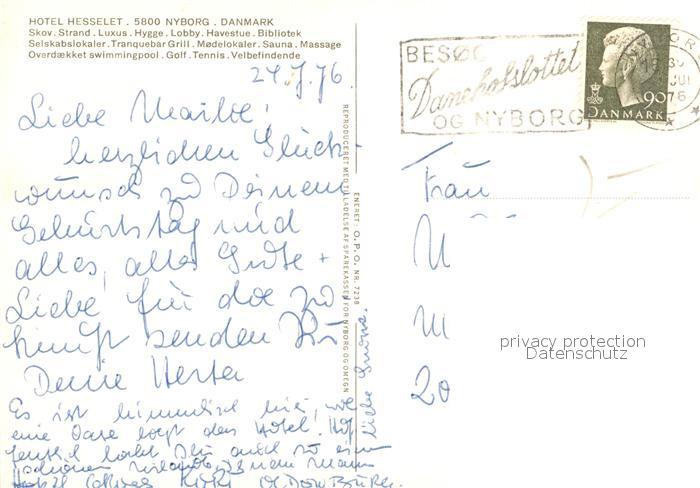 HOTEL HESSELET . 5800 NYBORG . DANMARK
Skov . Strand . Luxus . Hygge . Lobby . Havestue . Bibliotek
Selskabslokaler . Tranquebar Grill . Mødelokaler . Sauna . Massage
Overdækket swimmingpool . Golf . Tennis . Velbefindende
24.7.76.
Liebe
herzlichen Glück-
wunsch zu Deinem
Geburtstag und
alles, alles Gute +
Liebe für die Zu
kunft senden Dir
Deine Herta
Es ist himmlisch hier, wie
eine Oase liegt das Hotel.
liebe Grüsse.
REPRODUCERET MED TILLADELSE AF SPAREKASSEN FOR NYBORG OG OMEGN
ENERET: O.P.O. NR. 7238
BESØG
Danehofslottet
OG NYBORG
90
DANMARK
Frau
U
M
20
privacy protection
Datenschutz